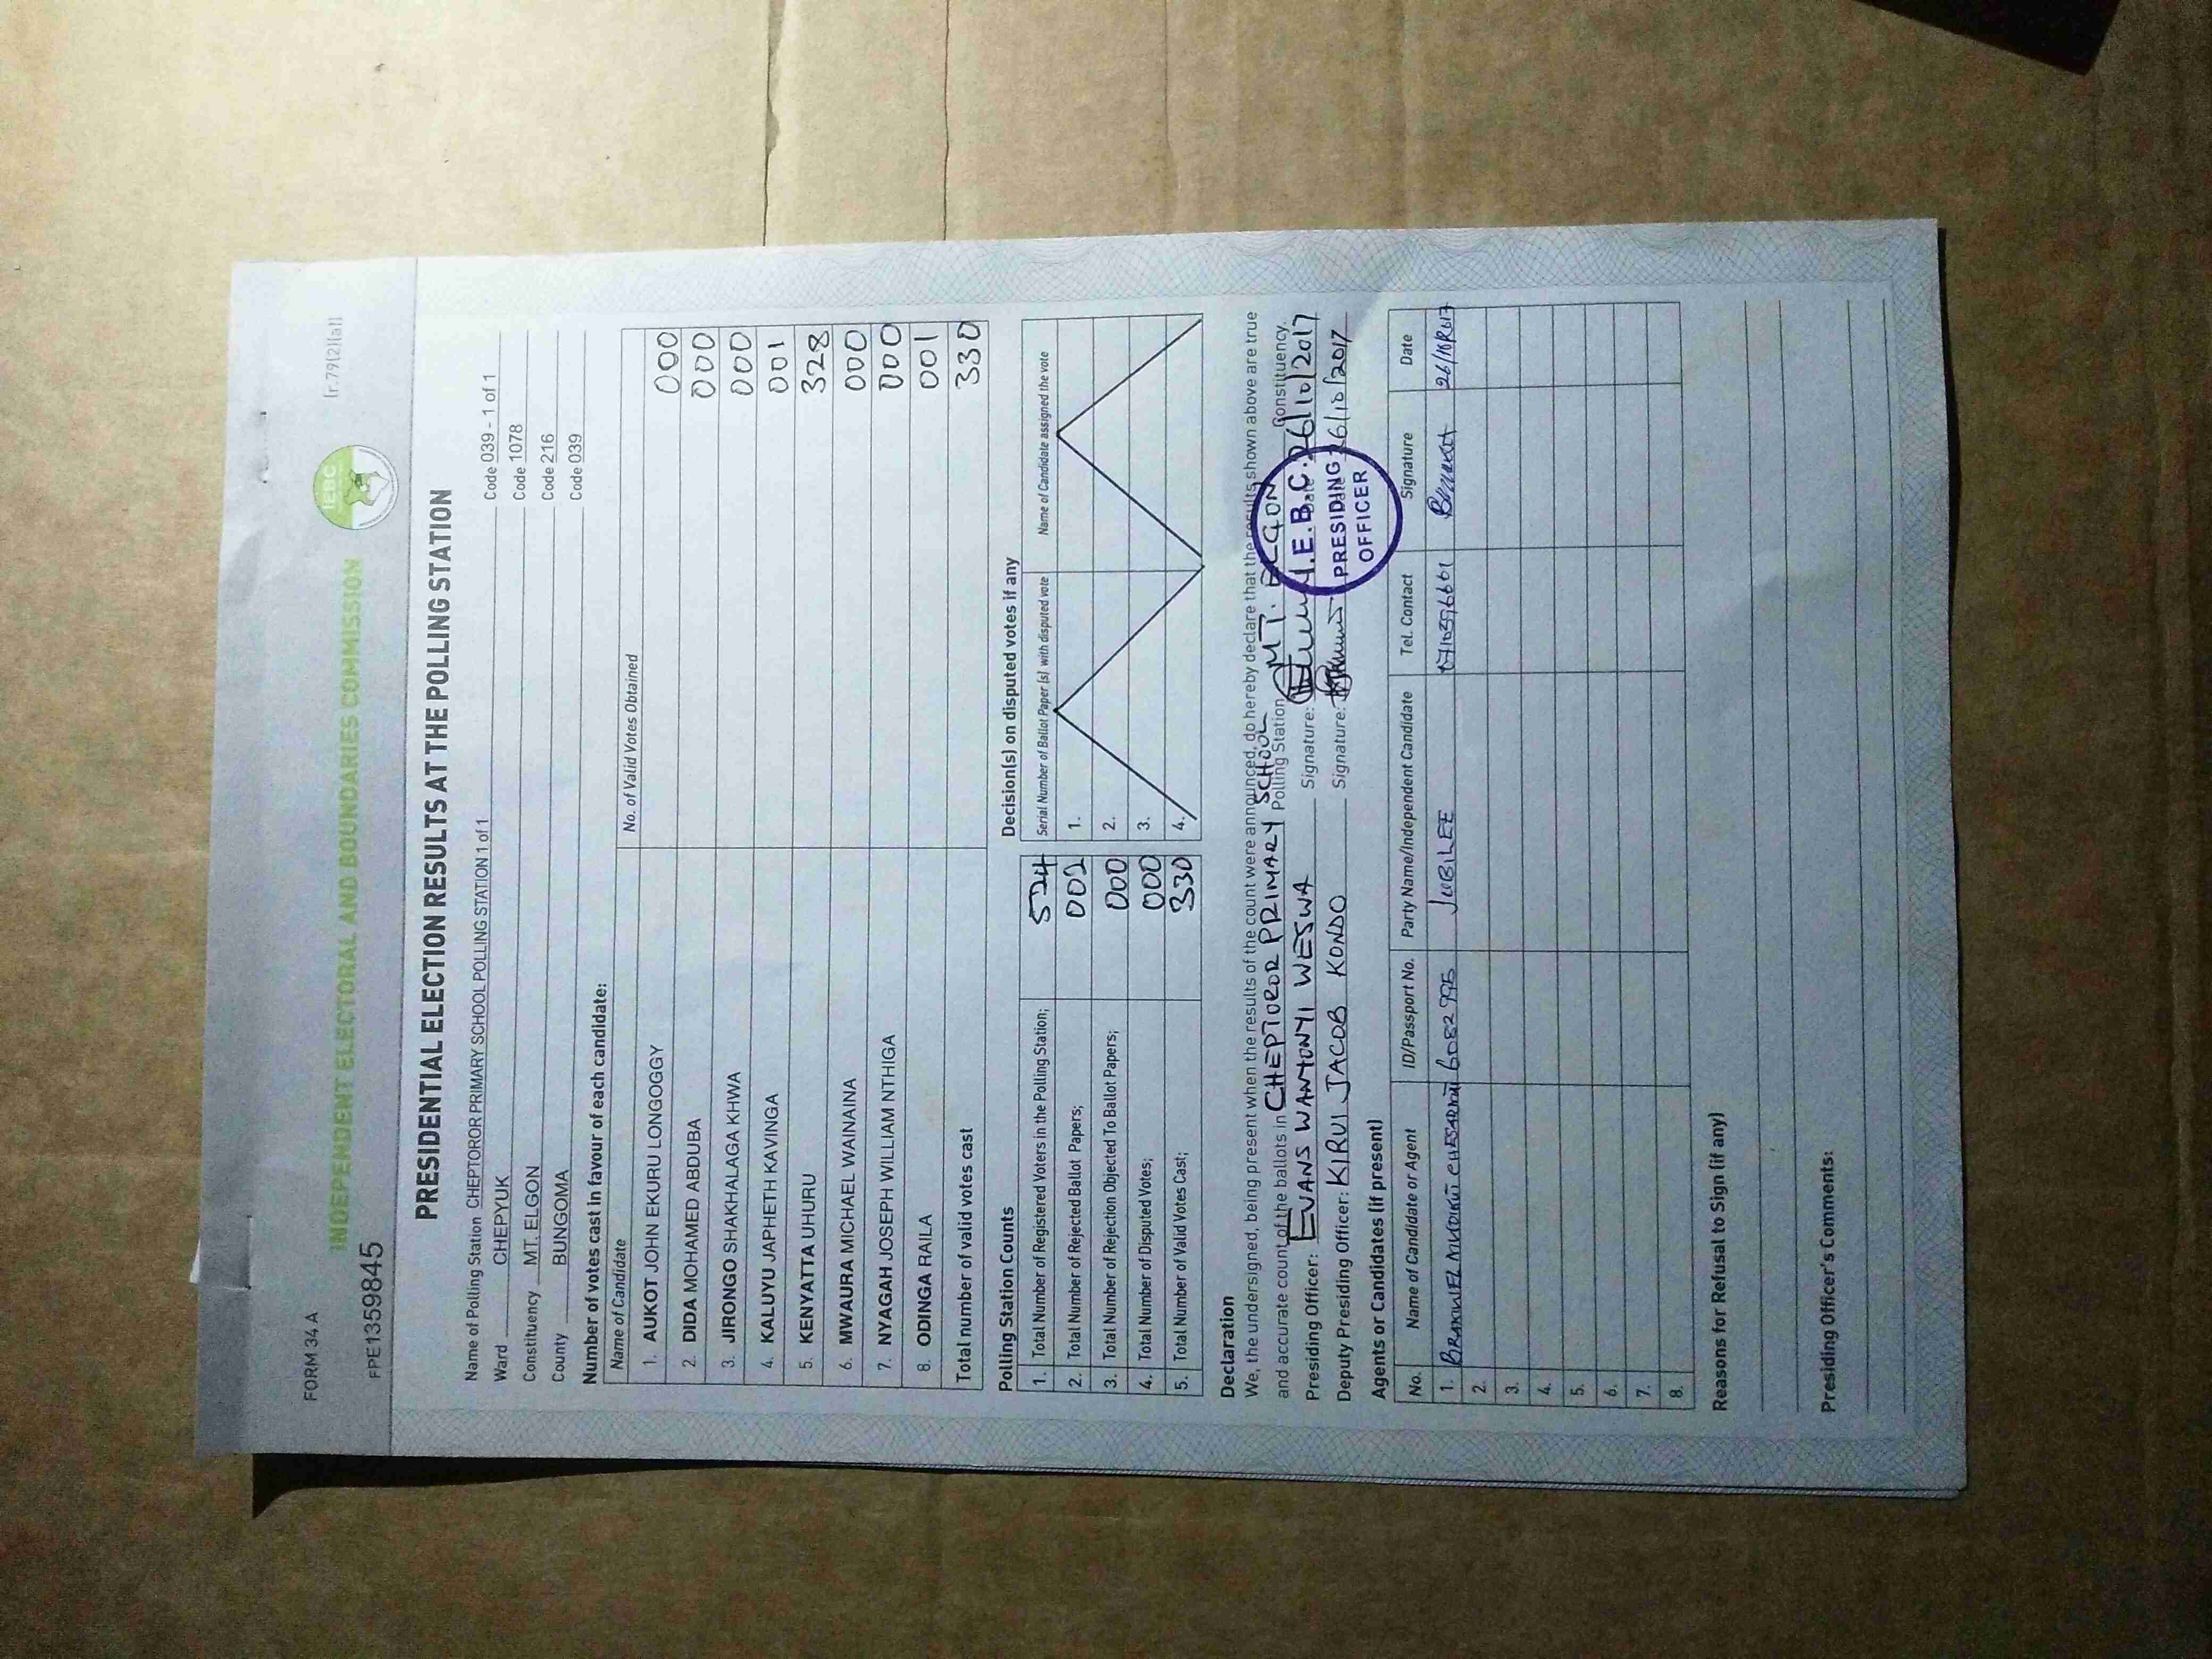 FORM 34 A
(r.79(2)(a))
INDEPENDENT ELECTORAL AND BOUNDARIES COMMISSION
IEBC
FPE1359845
PRESIDENTIAL ELECTION RESULTS AT THE POLLING STATION
Name of Polling Station CHEPTOROR PRIMARY SCHOOL POLLING STATION 1 of 1 Code 039 - 1 of 1
Ward CHEPYUK Code 1078
Constituency MT. ELGON Code 216
County BUNGOMA Code 039
Number of votes cast in favour of each candidate:
Name of Candidate No. of Valid Votes Obtained
1. AUKOT JOHN EKURU LONGOGGY 000
2. DIDA MOHAMED ABDUBA 000
3. JIRONGO SHAKHALAGA KHWA 000
4. KALUYU JAPHETH KAVINGA 001
5. KENYATTA UHURU 328
6. MWAURA MICHAEL WAINAINA 000
7. NYAGAH JOSEPH WILLIAM NTHIGA 000
8. ODINGA RAILA 001
Total number of valid votes cast 330
Polling Station Counts
1. Total Number of Registered Voters in the Polling Station; 524
2. Total Number of Rejected Ballot Papers; 002
3. Total Number of Rejection Objected To Ballot Papers; 000
4. Total Number of Disputed Votes; 000
5. Total Number of Valid Votes Cast; 330
Decision(s) on disputed votes if any
Serial Number of Ballot Paper (s) with disputed vote Name of Candidate assigned the vote
1.
2.
3.
4.
Declaration
We, the undersigned, being present when the results of the count were announced, do hereby declare that the results shown above are true
and accurate count of the ballots in CHEPTOROR PRIMARY SCHOOL Polling Station MT. ELGON Constituency.
Presiding Officer: EVANS WANYONYI WESWA Signature: Date 26/10/2017
Deputy Presiding Officer: KIRUI JACOB KONDO Signature: Date 26/10/2017
I.E.B.C.
PRESIDING
OFFICER
Agents or Candidates (if present)
No. Name of Candidate or Agent ID/Passport No. Party Name/Independent Candidate Tel. Contact Signature Date
1. 6082995 JUBILEE
2.
3.
4.
5.
6.
7.
8.
Reasons for Refusal to Sign (if any)
Presiding Officer's Comments: